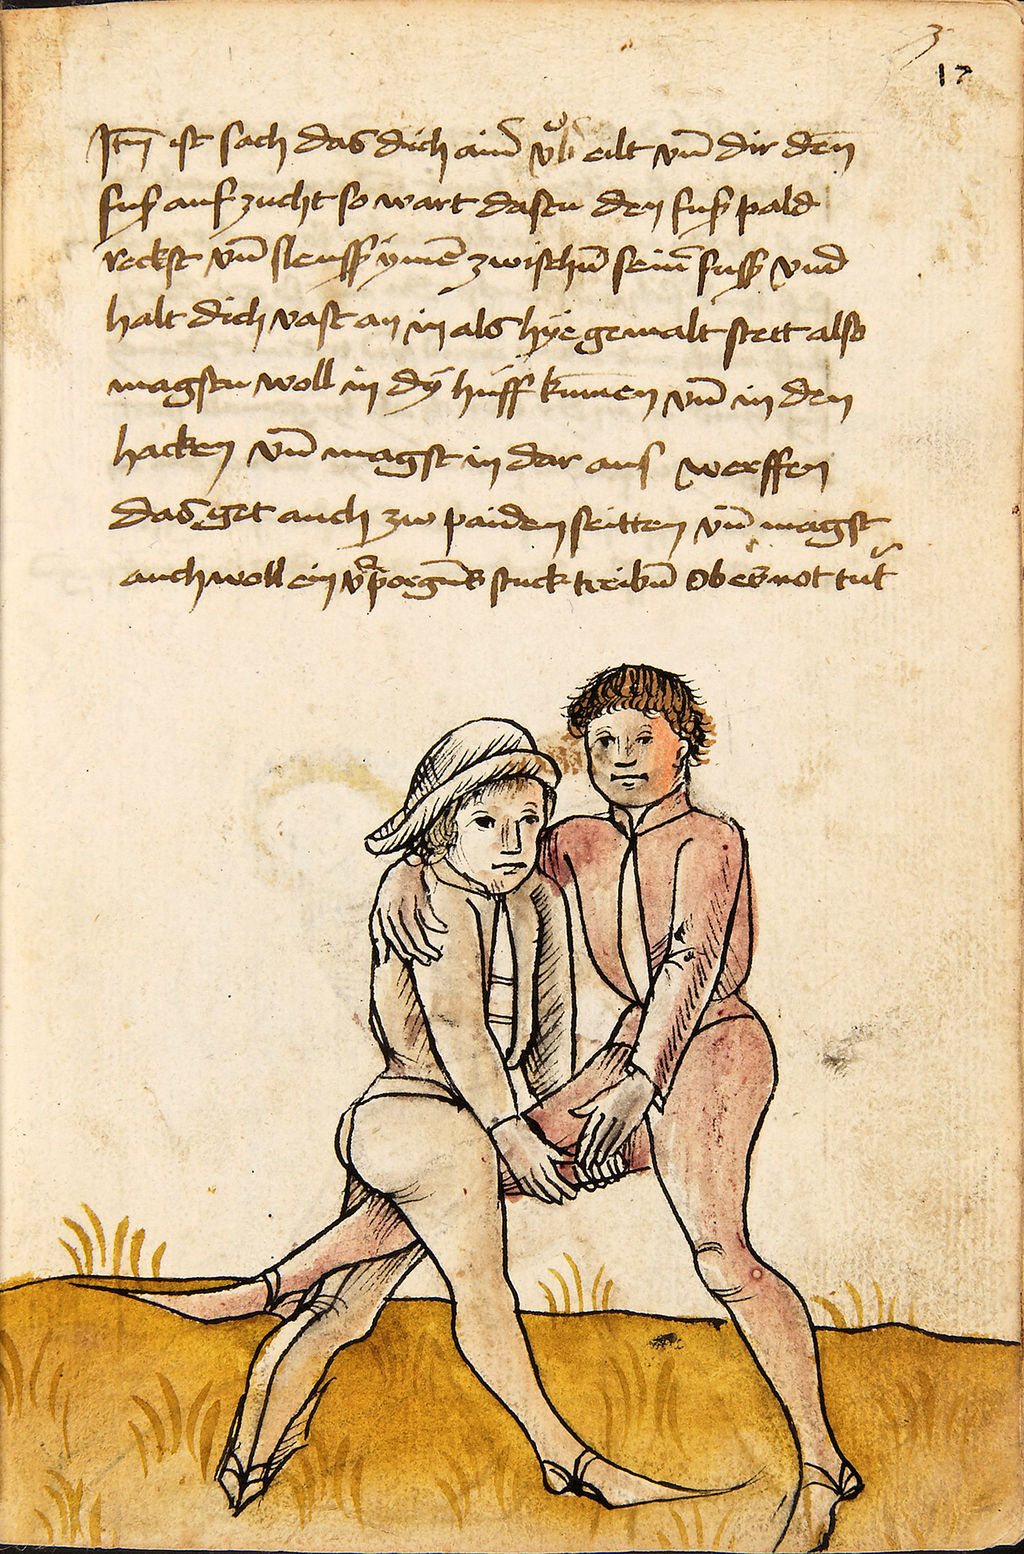 3
17
Itm̄ ist sach das dich ainr̄ vb̄ eilt vn̄ dir den̄
fuß auf zucht so wart dastu den fuß pald
reckst vn̄ sleuss ÿme͞ zwischn̄ sein̄ fuss vnd
halt dich vast an in als hÿe gemalt stett also
magstu woll in dÿ huff kumen vn̄ in den
hacken vn̄ magst in dar aus werffen
das get auch zw paiden seitten vn̄ magst
auch woll ein stuck treibn̄ ob es not tut